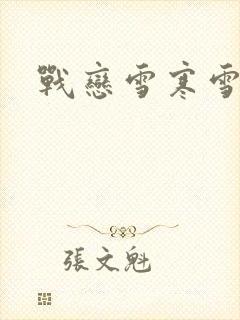 戰戀雪寒雪
張文魁